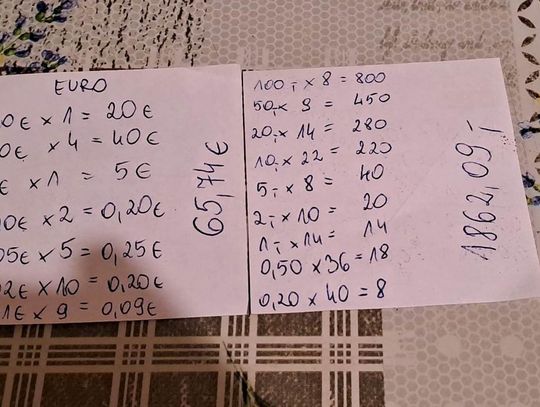 EURO
0€ × 1 = 20€
0€ × 4 = 40€
€ × 1 = 5€
0€ × 2 = 0,20€
05€ × 5 = 0,25€
2€ × 10 = 0,20€
1€ × 9 = 0,09€
65,74€
100,- × 8 = 800
50,- × 9 = 450
20,- × 14 = 280
10,- × 22 = 220
5,- × 8 = 40
2,- × 10 = 20
1,- × 14 = 14
0,50 × 36 = 18
0,20 × 40 = 8
1862,09,-